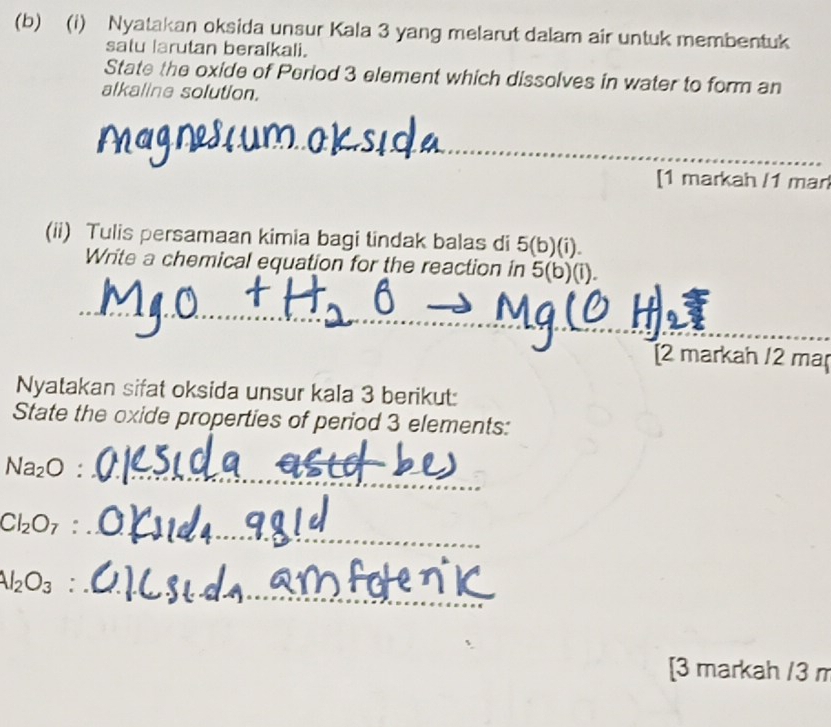 (b) (i) Nyatakan oksida unsur Kala 3 yang melarut dalam air untuk membentuk
satu larutan beralkali.
State the oxide of Period 3 element which dissolves in water to form an
alkaline solution.
magnesium oksida
[1 markah /1 mar
(ii) Tulis persamaan kimia bagi tindak balas di 5(b)(i).
Write a chemical equation for the reaction in 5(b)(i).
MgO + H₂O → Mg(OH)₂
[2 markah /2 mar
Nyatakan sifat oksida unsur kala 3 berikut:
State the oxide properties of period 3 elements:
Na₂O : oksida bes
Cl₂O₇ : oksida asid
Al₂O₃ : oksida amfoterik
[3 markah /3 m